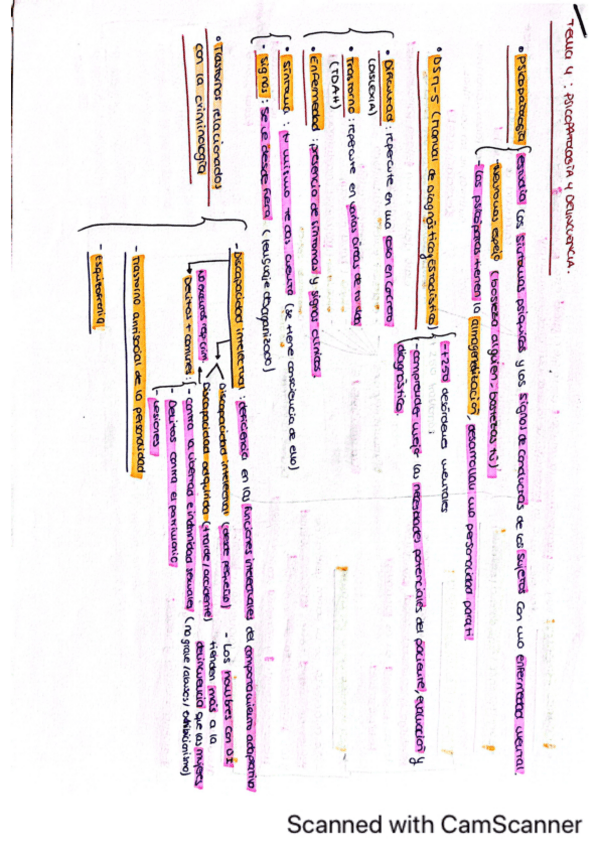 Tema 4: PSICOPATOLOGÍA Y DELINCUENCIA.
• Psicopatología: estudia los síntomas psíquicos y los signos de conductas de los sujetos con una enfermedad mental
- Neuronas espejo (bosteza alguien, bostezas tú)
- Los psicópatas tienen la desarrollan una personalidad para ti
• DSM-5 (Manual de diagnóstico y estadístico)
- +250 desórdenes mentales
- comprender mejor las necesidades potenciales del paciente, evaluación y
diagnóstico.
• Dificultad: repercute en una cosa en concreto
(DISLEXIA)
• Trastorno: repercute en varias áreas de tu vida
(TDAH)
• Enfermedad: presencia de síntomas y signos clínicos
• Síntoma: tú mismo te das cuenta (se tiene consciencia de ello)
- Signos: se ve desde fuera (lenguaje desorganizado)
• Trastornos relacionados
con la criminología
- Discapacidad intelectual: deficiencia en las funciones intelectuales del comportamiento adaptativo
Discapacidad intelectual (desde pequeño)
Discapacidad adquirida (+ tarde/accidente)
- Los hombres con DI
tienden más a la
delincuencia que las mujeres
Delitos + comunes:
- contra la libertad e indemnidad sexuales (no grave/abusos/exhibicionismo)
- Delitos contra el patrimonio
- Lesiones
- Trastorno antisocial de la personalidad
- Esquizofrenia
Scanned with CamScanner